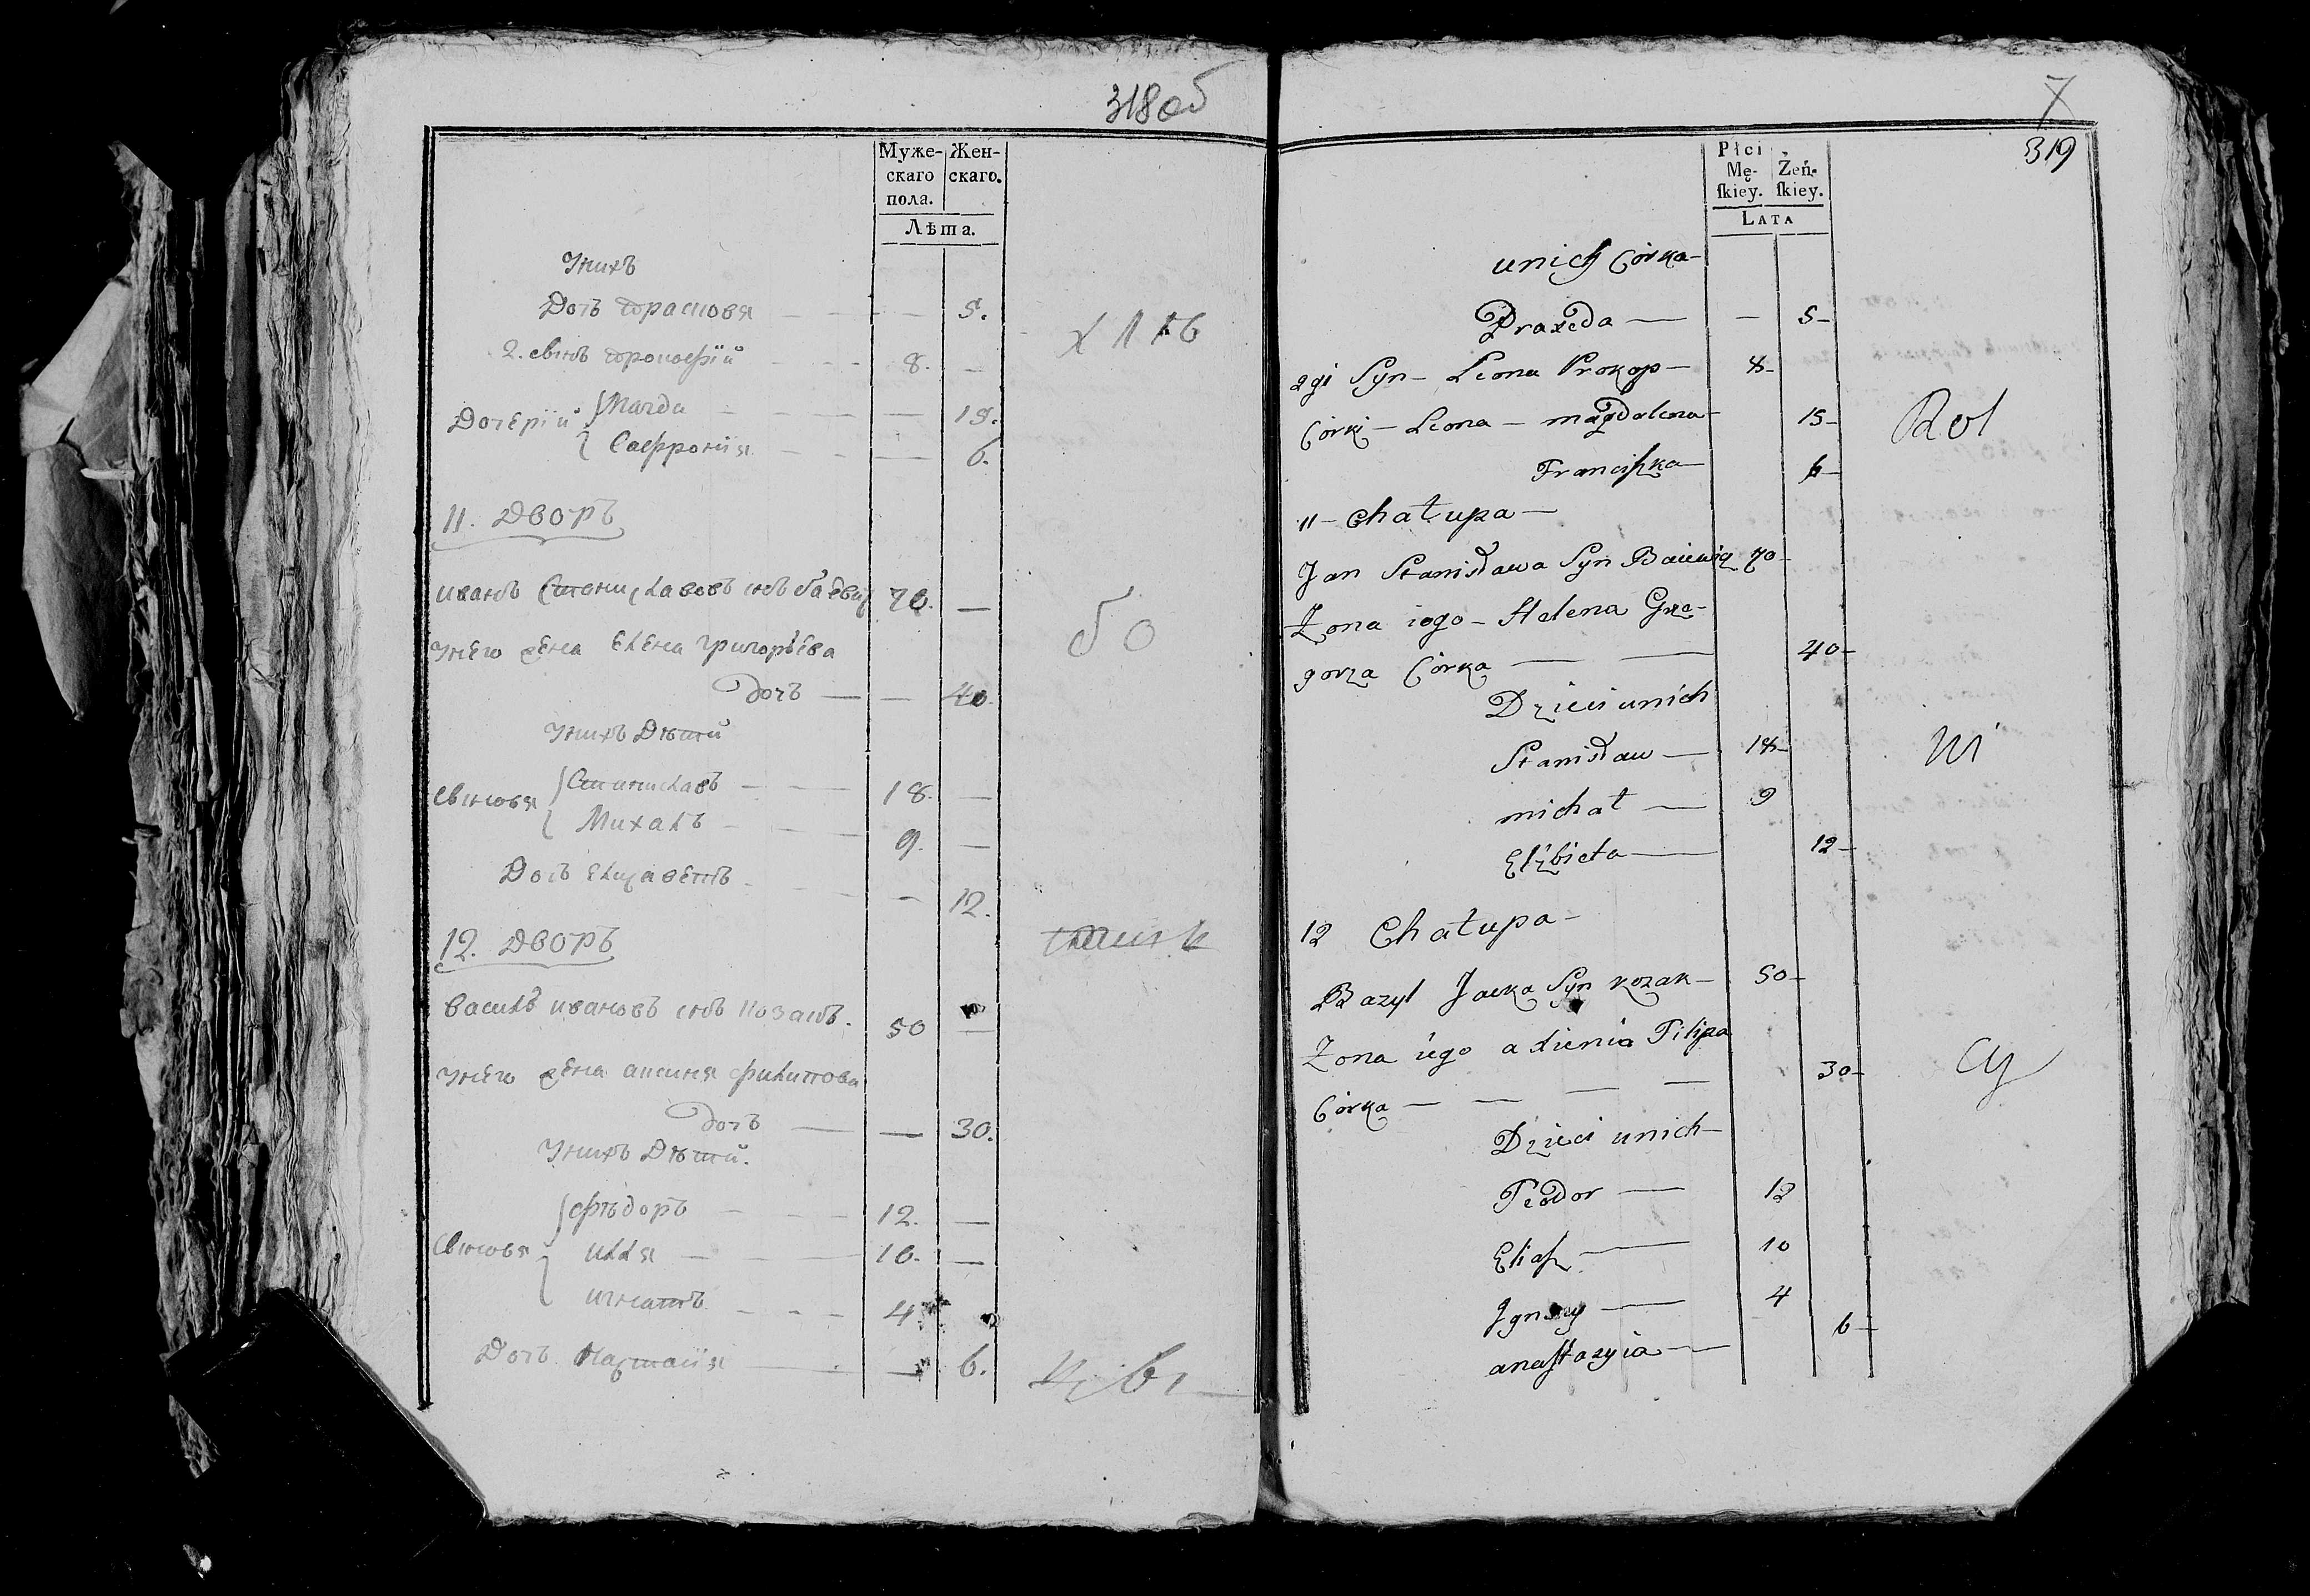 318 об
Муже- Жен-
скаго скаго.
пола.
Лѣта.
Унихъ
Дочь Прасковя — — — 5.
2. сынъ Прокофій — — — 8. —
Дочерій Магда — — — — 15.
Сафронія — — — 6.
11. Дворъ
Иванъ Станиславовъ снъ 70. —
Унего жена Елена Григорьева
дочь — — 40.
Унихъ Дѣтй
Сыновя Станиславъ — — 18. —
Михалъ — — 9. —
Дочь Елизаветъ — — 12.
12. Дворъ
Василь Ивановъ снъ Козакъ. 50 —
Унего жена Аксиня Филипова
дочь — — 30.
Унихъ Дѣтй.
Сыновя Фѣдоръ — — 12. —
Илля — — 10. —
Игнатъ — — 4.
Дочь Настасія — — 6.
7
319
Płci
Mę- Żeń-
ſkiey. ſkiey.
Lata
unich Córka—
Praxeda — — 5—
2gi Syn— Leona Prokop— 8—
Córki— Leona— magdalena— 15—
Franciſzka— 6—
Rol
11— Chałupa—
Jan Stanisława Syn 70—
Zona iego— Helena Grze-
gorza Córka — — 40—
Dzieci unich
Stanisław — 18—
michał — 9
Elżbieta — 12—
ni
12 Chałupa—
Bazyl Jacka Syn kozak— 50—
Zona iego axienia Filipa
Córka — — — — 30—
cy
Dzieci unich—
Teodor — 12
Eliaſz — 10
Ignacy — 4
anaſtazyia — 6—